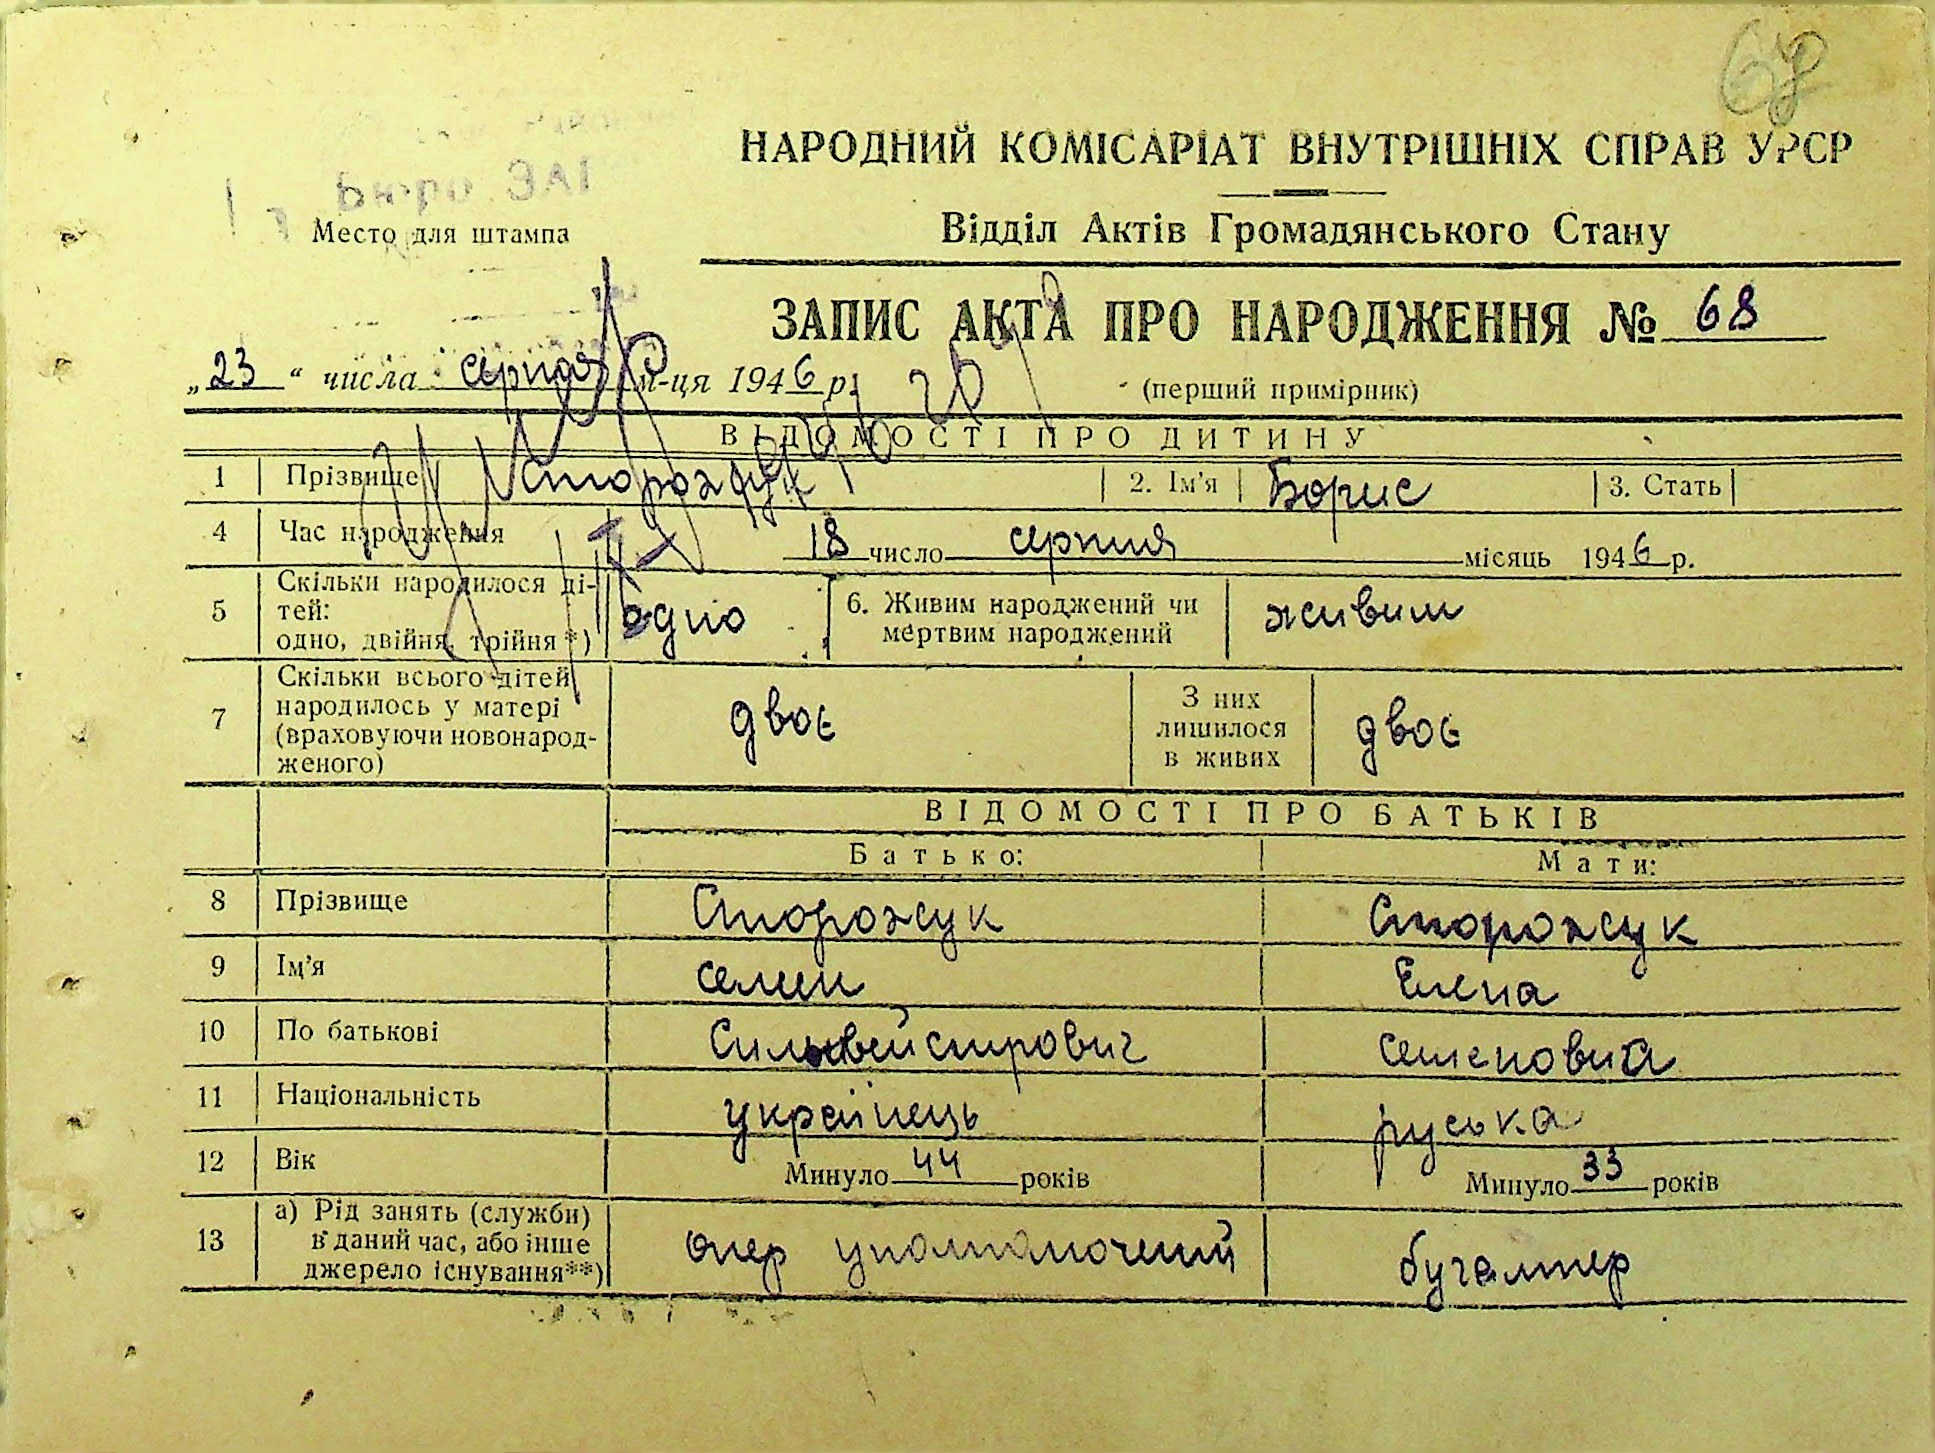 НАРОДНИЙ КОМІСАРІАТ ВНУТРІШНІХ СПРАВ УРСР
Бюро ЗАГ
Место для штампа
Відділ Актів Громадянського Стану
ЗАПИС АКТА ПРО НАРОДЖЕННЯ № 68
„23“ числа серпня м-ця 1946 р.
(перший примірник)
ВІДОМОСТІ ПРО ДИТИНУ
1 Прізвище Сторожук 2. Ім'я Борис 3. Стать
4 Час народження 18 число серпня місяць 1946 р.
5 Скільки народилося ді-
тей:
одно, двійня, трійня *) одно 6. Живим народжений чи
мертвим народжений живим
7 Скільки всього дітей
народилось у матері
(враховуючи новонарод-
женого) двоє З них
лишилося
в живих двоє
ВІДОМОСТІ ПРО БАТЬКІВ
Батько: Мати:
8 Прізвище Сторожук Сторожук
9 Ім'я Семен Елена
10 По батькові Сильвейстрович Семеновна
11 Національність українець руська
12 Вік Минуло 44 років Минуло 33 років
13 а) Рід занять (служби)
в даний час, або інше
джерело існування**) опер уполномочений бугалтер